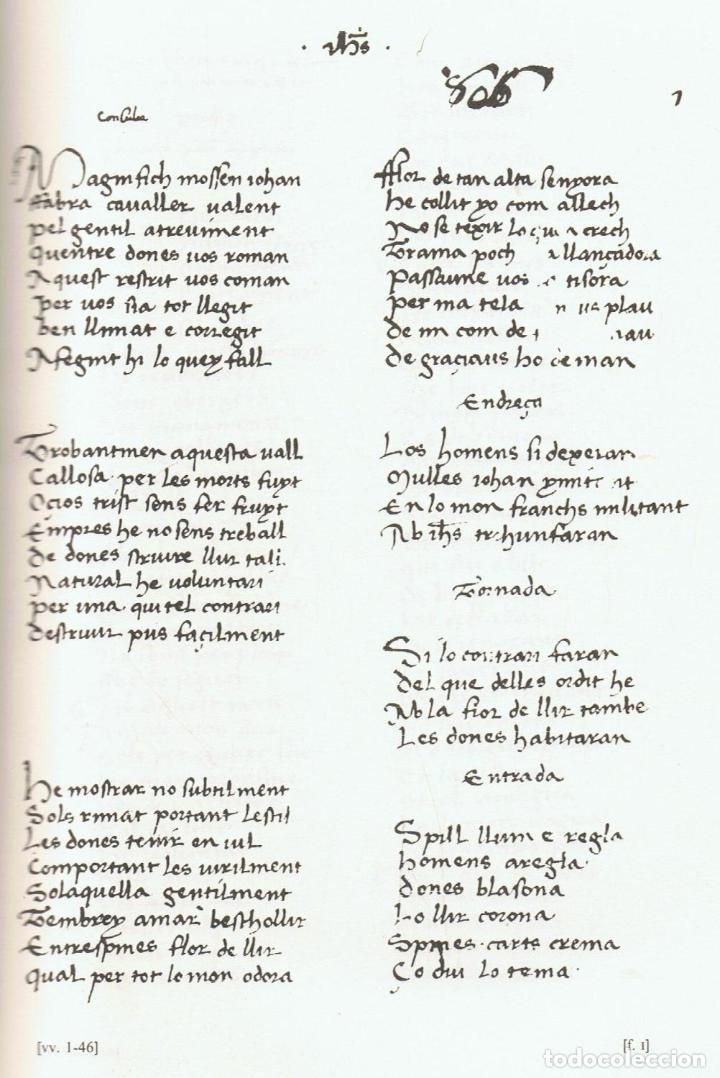 · ihs ·
1
Consulta
Magnifich mossen iohan
ffabra cavaller valent
pel gentil atreviment
quentre dones vos roman
Aquest restrit vos coman
per vos sia tot llegit
ben llimat e corregit
Afegint hi lo quey fall
Trobantmen aquesta vall
Callosa per les morts fuyt
Ocios trist sens fer fruyt
Empres he no sens treball
De dones scriure llur tall
Natural he voluntari
per una qui tel contrari
destruir pus façilment
He mostrar no subtilment
Sols rimat portant lestil
Les dones tenir en vil
Comportant les virilment
Solaquella gentilment
Tembrey amar besthollir
Entrespines flor de llir
qual per tot lo mon odora
fflor de tan alta senyora
he collit yo com allech
No se texir lo qua crech
Trama poch a llançadora
passaume vos tisora
per ma tela n us plau
de mi com de iau
de graçiaus ho deman
Endreça
Los homens si dexeran
Mulles iohan ymit it
En lo mon franchs militant
Ab ihs trihunfaran
Tornada
Si lo contrari faran
del que delles ordit he
Ab la flor de llir tambe
Les dones habitaran
Entrada
Spill llum e regla
homens aregla
dones blasona
Lo llir corona
Spines carts crema
Ço diu lo tema
[vv. 1-46]
[f. 1]
todocoleccion